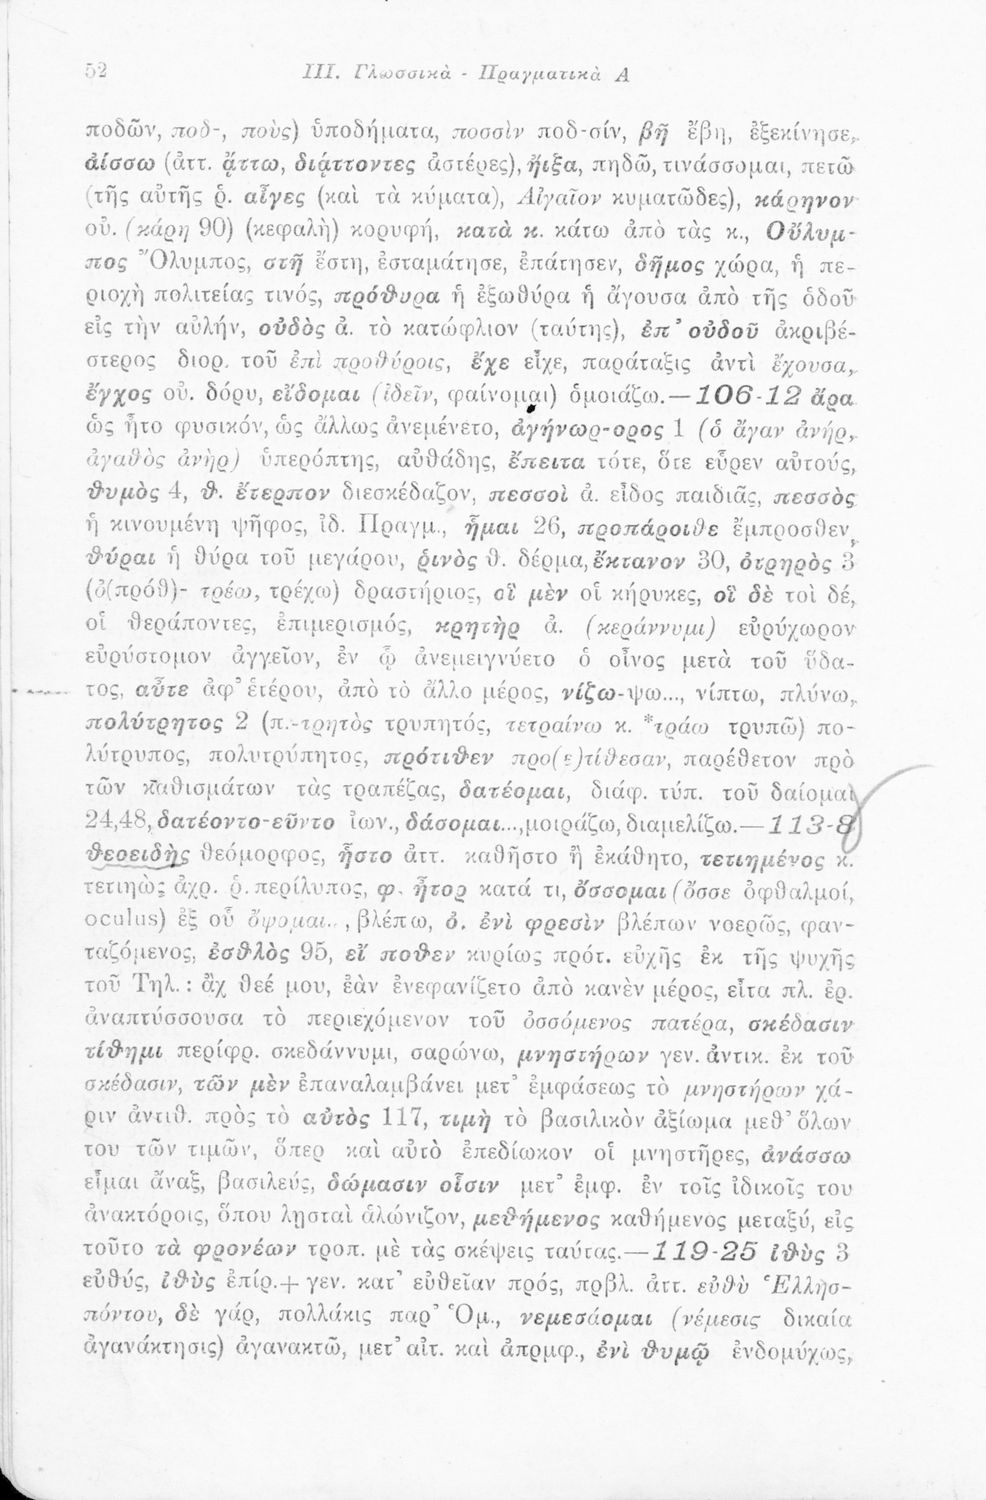 52
III. Γλωσσικὰ - Πραγματικὰ Α
ποδῶν, ποδ-, ποὺς) ὑποδήματα, ποσσὶν ποδ-σίν, βῆ ἔβη, ἐξεκίνησε,
ἀίσσω (ἀττ. ᾄττω, διᾴττοντες ἀστέρες), ἤιξα, πηδῶ, τινάσσομαι, πετῶ
(τῆς αὐτῆς ῥ. αἶγες (καὶ τὰ κύματα), Αἰγαῖον κυματῶδες), κάρηνον
οὐ. (κάρη 90) (κεφαλὴ) κορυφή, κατὰ κ. κάτω ἀπὸ τὰς κ., Οὔλυμ-
πος Ὄλυμπος, στῆ ἔστη, ἐσταμάτησε, ἐπάτησεν, δῆμος χώρα, ἡ πε-
ριοχὴ πολιτείας τινός, πρόθυρα ἡ ἐξωθύρα ἡ ἄγουσα ἀπὸ τῆς ὁδοῦ
εἰς τὴν αὐλήν, οὐδὸς ἀ. τὸ κατώφλιον (ταύτης), ἐπ' οὐδοῦ ἀκριβέ-
στερος διορ. τοῦ ἐπὶ προθύροις, ἔχε εἶχε, παράταξις ἀντὶ ἔχουσα,
ἔγχος οὐ. δόρυ, εἴδομαι (ἰδεῖν, φαίνομαι) ὁμοιάζω.—106-12 ἄρα
ὡς ἦτο φυσικόν, ὡς ἄλλως ἀνεμένετο, ἀγήνωρ-ορος 1 (ὁ ἄγαν ἀνήρ,
ἀγαθὸς ἀνὴρ) ὑπερόπτης, αὐθάδης, ἔπειτα τότε, ὅτε εὗρεν αὐτούς,
θυμὸς 4, θ. ἔτερπον διεσκέδαζον, πεσσοὶ ἀ. εἶδος παιδιᾶς, πεσσὸς
ἡ κινουμένη ψῆφος, ἰδ. Πραγμ., ἧμαι 26, προπάροιθε ἔμπροσθεν,
θύραι ἡ θύρα τοῦ μεγάρου, ῥινὸς θ. δέρμα, ἔκτανον 30, ὀτρηρὸς 3
(ὀ(πρόθ)- τρέω, τρέχω) δραστήριος, οἳ μὲν οἱ κήρυκες, οἳ δὲ τοὶ δέ,
οἱ θεράποντες, ἐπιμερισμός, κρητὴρ ἀ. (κεράννυμι) εὐρύχωρον
εὐρύστομον ἀγγεῖον, ἐν ᾧ ἀνεμειγνύετο ὁ οἶνος μετὰ τοῦ ὕδα-
τος, αὖτε ἀφ' ἑτέρου, ἀπὸ τὸ ἄλλο μέρος, νίζω-ψω..., νίπτω, πλύνω,
πολύτρητος 2 (π.-τρητὸς τρυπητός, τετραίνω κ. *τράω τρυπῶ) πο-
λύτρυπος, πολυτρύπητος, πρότιθεν προ(ε)τίθεσαν, παρέθετον πρὸ
τῶν καθισμάτων τὰς τραπέζας, δατέομαι, διάφ. τύπ. τοῦ δαίομαι
24,48, δατέοντο-εῦντο ἰων., δάσομαι..., μοιράζω, διαμελίζω.—113-8
θεοειδὴς θεόμορφος, ἧστο ἀττ. καθῆστο ἢ ἐκάθητο, τετιημένος κ.
τετιηὼς ἀχρ. ῥ. περίλυπος, φ. ἦτορ κατά τι, ὄσσομαι (ὄσσε ὀφθαλμοί,
oculus) ἐξ οὗ ὄψομαι.., βλέπω, ὀ. ἐνὶ φρεσὶν βλέπων νοερῶς, φαν-
ταζόμενος, ἐσθλὸς 95, εἴ ποθεν κυρίως πρότ. εὐχῆς ἐκ τῆς ψυχῆς
τοῦ Τηλ.: ἂχ θεέ μου, ἐὰν ἐνεφανίζετο ἀπὸ κανὲν μέρος, εἶτα πλ. ἐρ.
ἀναπτύσσουσα τὸ περιεχόμενον τοῦ ὀσσόμενος πατέρα, σκέδασιν
τίθημι περίφρ. σκεδάννυμι, σαρώνω, μνηστήρων γεν. ἀντικ. ἐκ τοῦ
σκέδασιν, τῶν μὲν ἐπαναλαμβάνει μετ' ἐμφάσεως τὸ μνηστήρων χά-
ριν ἀντιθ. πρὸς τὸ αὐτὸς 117, τιμὴ τὸ βασιλικὸν ἀξίωμα μεθ' ὅλων
του τῶν τιμῶν, ὅπερ καὶ αὐτὸ ἐπεδίωκον οἱ μνηστῆρες, ἀνάσσω
εἶμαι ἄναξ, βασιλεύς, δώμασιν οἷσιν μετ' ἐμφ. ἐν τοῖς ἰδικοῖς του
ἀνακτόροις, ὅπου λησταὶ ἁλώνιζον, μεθήμενος καθήμενος μεταξύ, εἰς
τοῦτο τὰ φρονέων τροπ. μὲ τὰς σκέψεις ταύτας.—119-25 ἰθὺς 3
εὐθύς, ἰθὺς ἐπίρ.+ γεν. κατ' εὐθεῖαν πρός, πρβλ. ἀττ. εὐθὺ Ἑλλησ-
πόντου, δὲ γάρ, πολλάκις παρ' Ὁμ., νεμεσάομαι (νέμεσις δικαία
ἀγανάκτησις) ἀγανακτῶ, μετ' αἰτ. καὶ ἀπρμφ., ἐνὶ θυμῷ ἐνδομύχως,